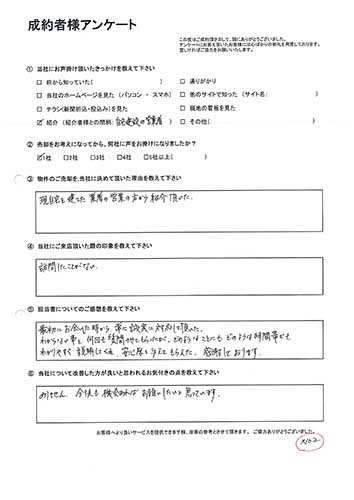 成約者様アンケート
この度はご成約頂きまして、誠にありがとうございました。
アンケートにお答え頂いたお客様には心ばかりの御礼を用意しております。
宜しければご協力をお願いいたします。
① 当社にお声掛け頂いたきっかけを教えて下さい
□ 前から知っていた( ) □ 通りがかり
□ 当社のホームページを見た (パソコン ・ スマホ) □ 他のサイトで知った (サイト名: )
□ チラシ(新聞折込・投込み)を見た □ 現地の看板を見た
☑ 紹介 (紹介者様との間柄: 自宅建設の営業者) □ その他( )
② 売却をお考えになってから、何社に声をお掛けになりましたか?
☑1社 □2社 □3社 □4社 □5社以上( )
③ 物件のご売却を、当社に決めて頂いた理由を教えて下さい
現自宅を建てた業者の営業の方から紹介頂いた。
④ 当社にご来店頂いた際の印象を教えて下さい
訪問したことがない。
⑤ 担当者についてのご感想を教えて下さい
最初にお会いした時から、常に誠実に対応して頂いた。
わからない事を何回も質問させてもらったが、どのようなことにもどのような時間帯でも
わかりやすく説明してくれ、安心感を与えてもらえた。感謝しております。
⑥ 当社について改善した方が良いと思われるお気付きの点を教えて下さい
ありません。今後も機会あればお願いしたいと思っています。
お客様へより良いサービスを提供できます様、改善の参考とさせて頂きます。 ご協力ありがとうございました。
No.2